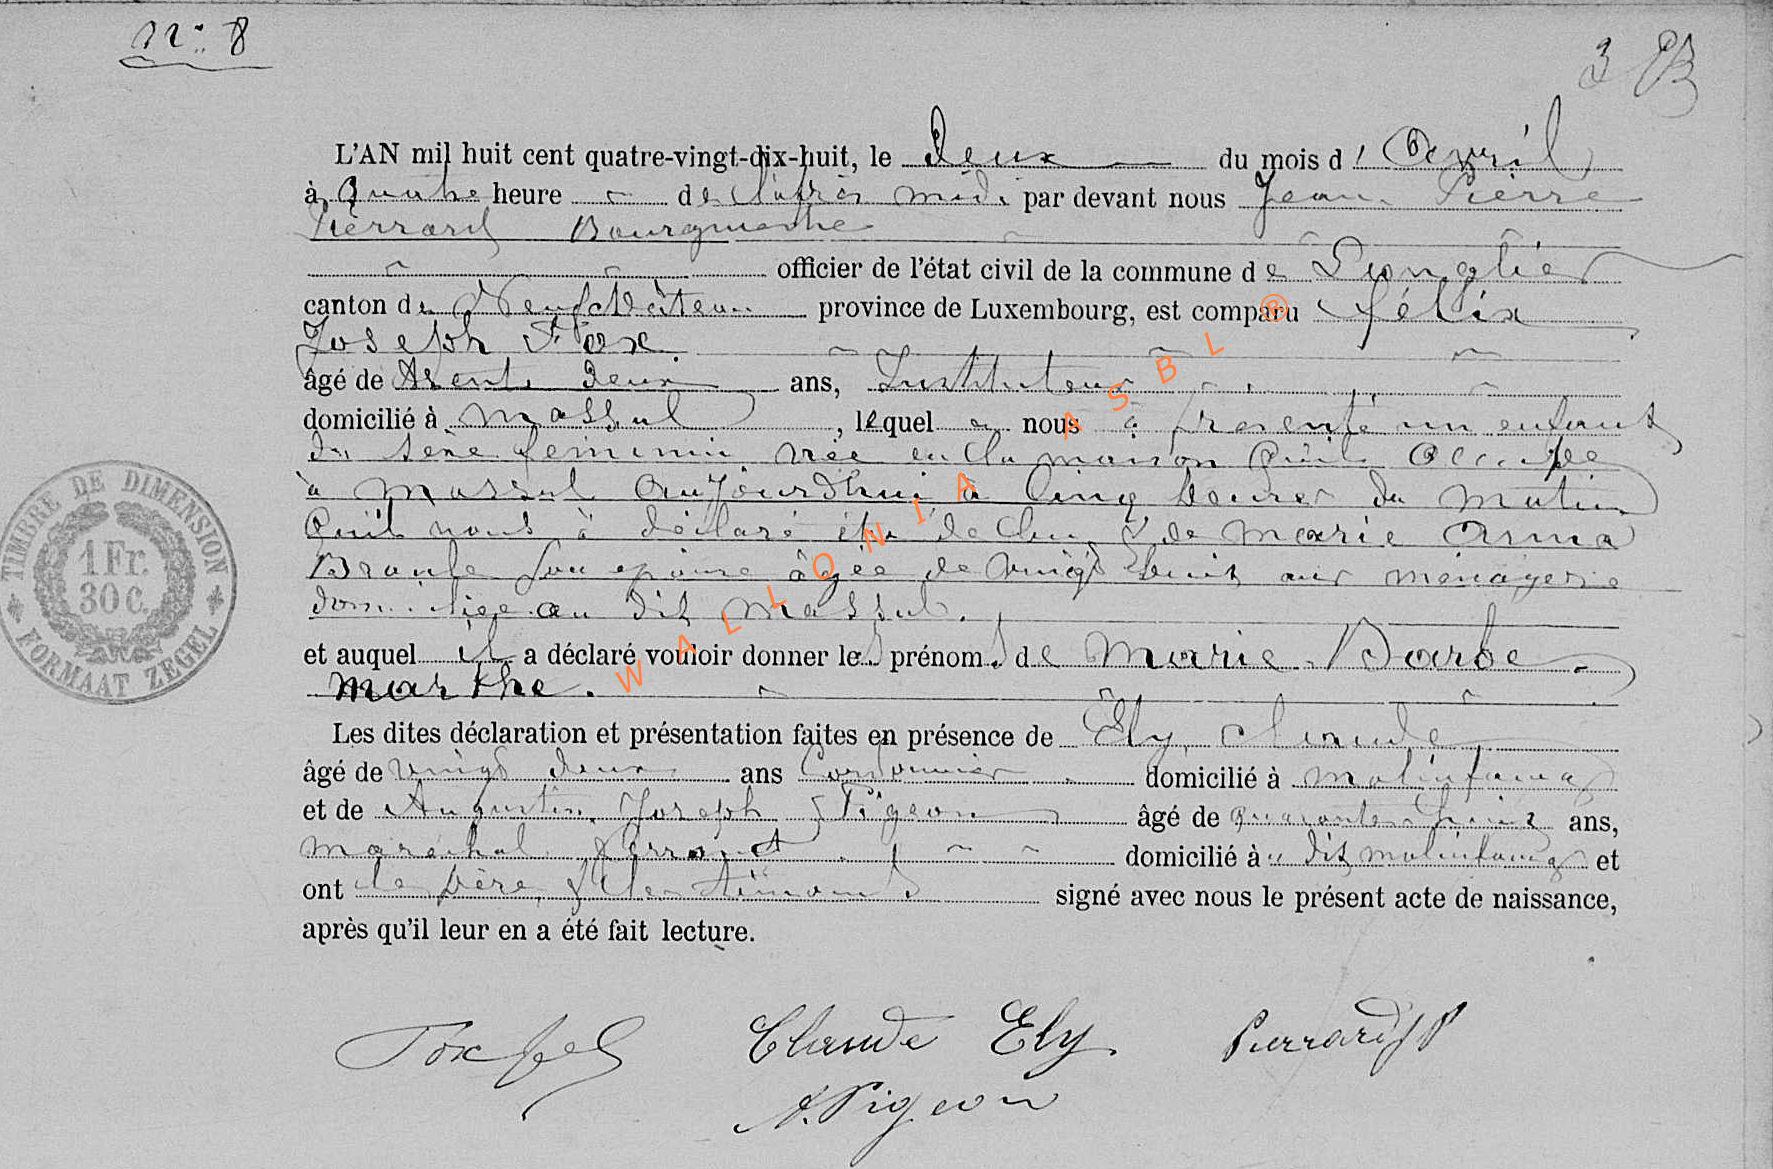 n° 8
3
L'AN mil huit cent quatre-vingt-dix-huit, le deux du mois d'Avril
à quatre heure de l'après midi par devant nous Jean Pierre
Pierrard Bourgmestre
officier de l'état civil de la commune de Longlier
canton de Neufchâteau province de Luxembourg, est comparu Félix
Joseph Fox.
âgé de trente deux ans, Instituteur
domicilié à Massul, lequel nous à presenté un enfant
du sexe feminin née en la maison qu'il occupe
à Massul aujourd'hui à cinq heures du matin
qu'il nous à déclaré être de lui & de Marie Anna
son epouse âgée de vingt huit ans menagere
domiciliee au dit Massul.
et auquel il a déclaré vouloir donner les prénoms de Marie Barbe
Marthe.
Les dites déclaration et présentation faites en présence de Ely, Claude,
âgé de vingt deux ans Cordonnier domicilié à Molinfaing
et de Augustin Joseph Pigeon âgé de quarante huit ans,
maréchal ferrant domicilié à u dit Molinfaing et
ont le père & les témoins signé avec nous le présent acte de naissance,
après qu'il leur en a été fait lecture.
TIMBRE DE DIMENSION
1 Fr.
30 C.
FORMAAT ZEGEL
WALLONIA ASBL ®
Fox fel Claude Ely Pierrard JP
A. Pigeon